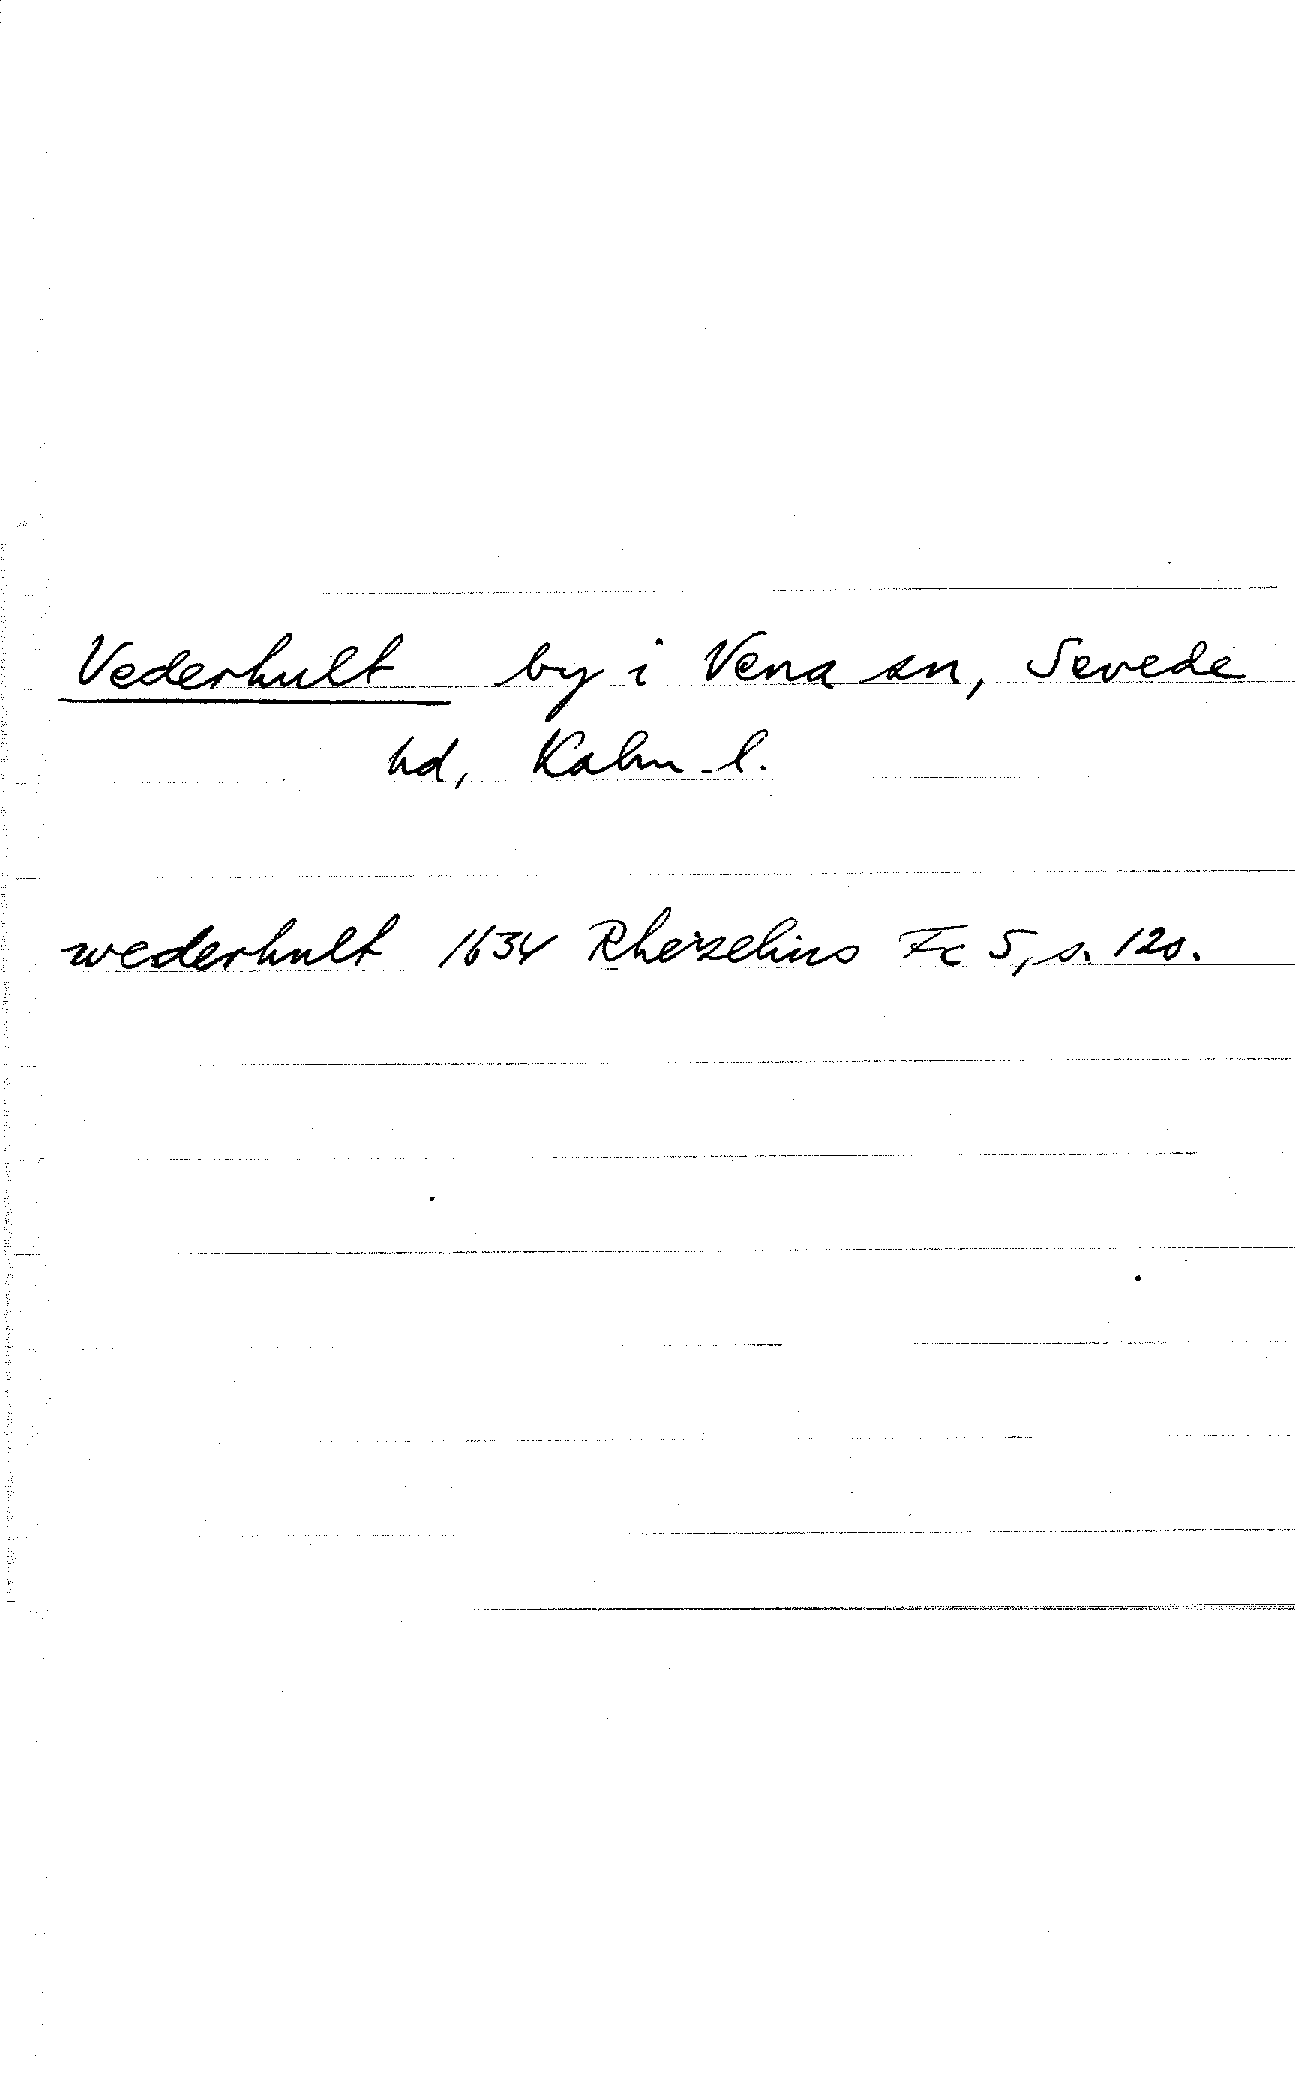 Vederhult by i Vena sn, Sevede
hd, Kalm. l.
wederhult 1634 Rhezelius Fc 5, s. 120.